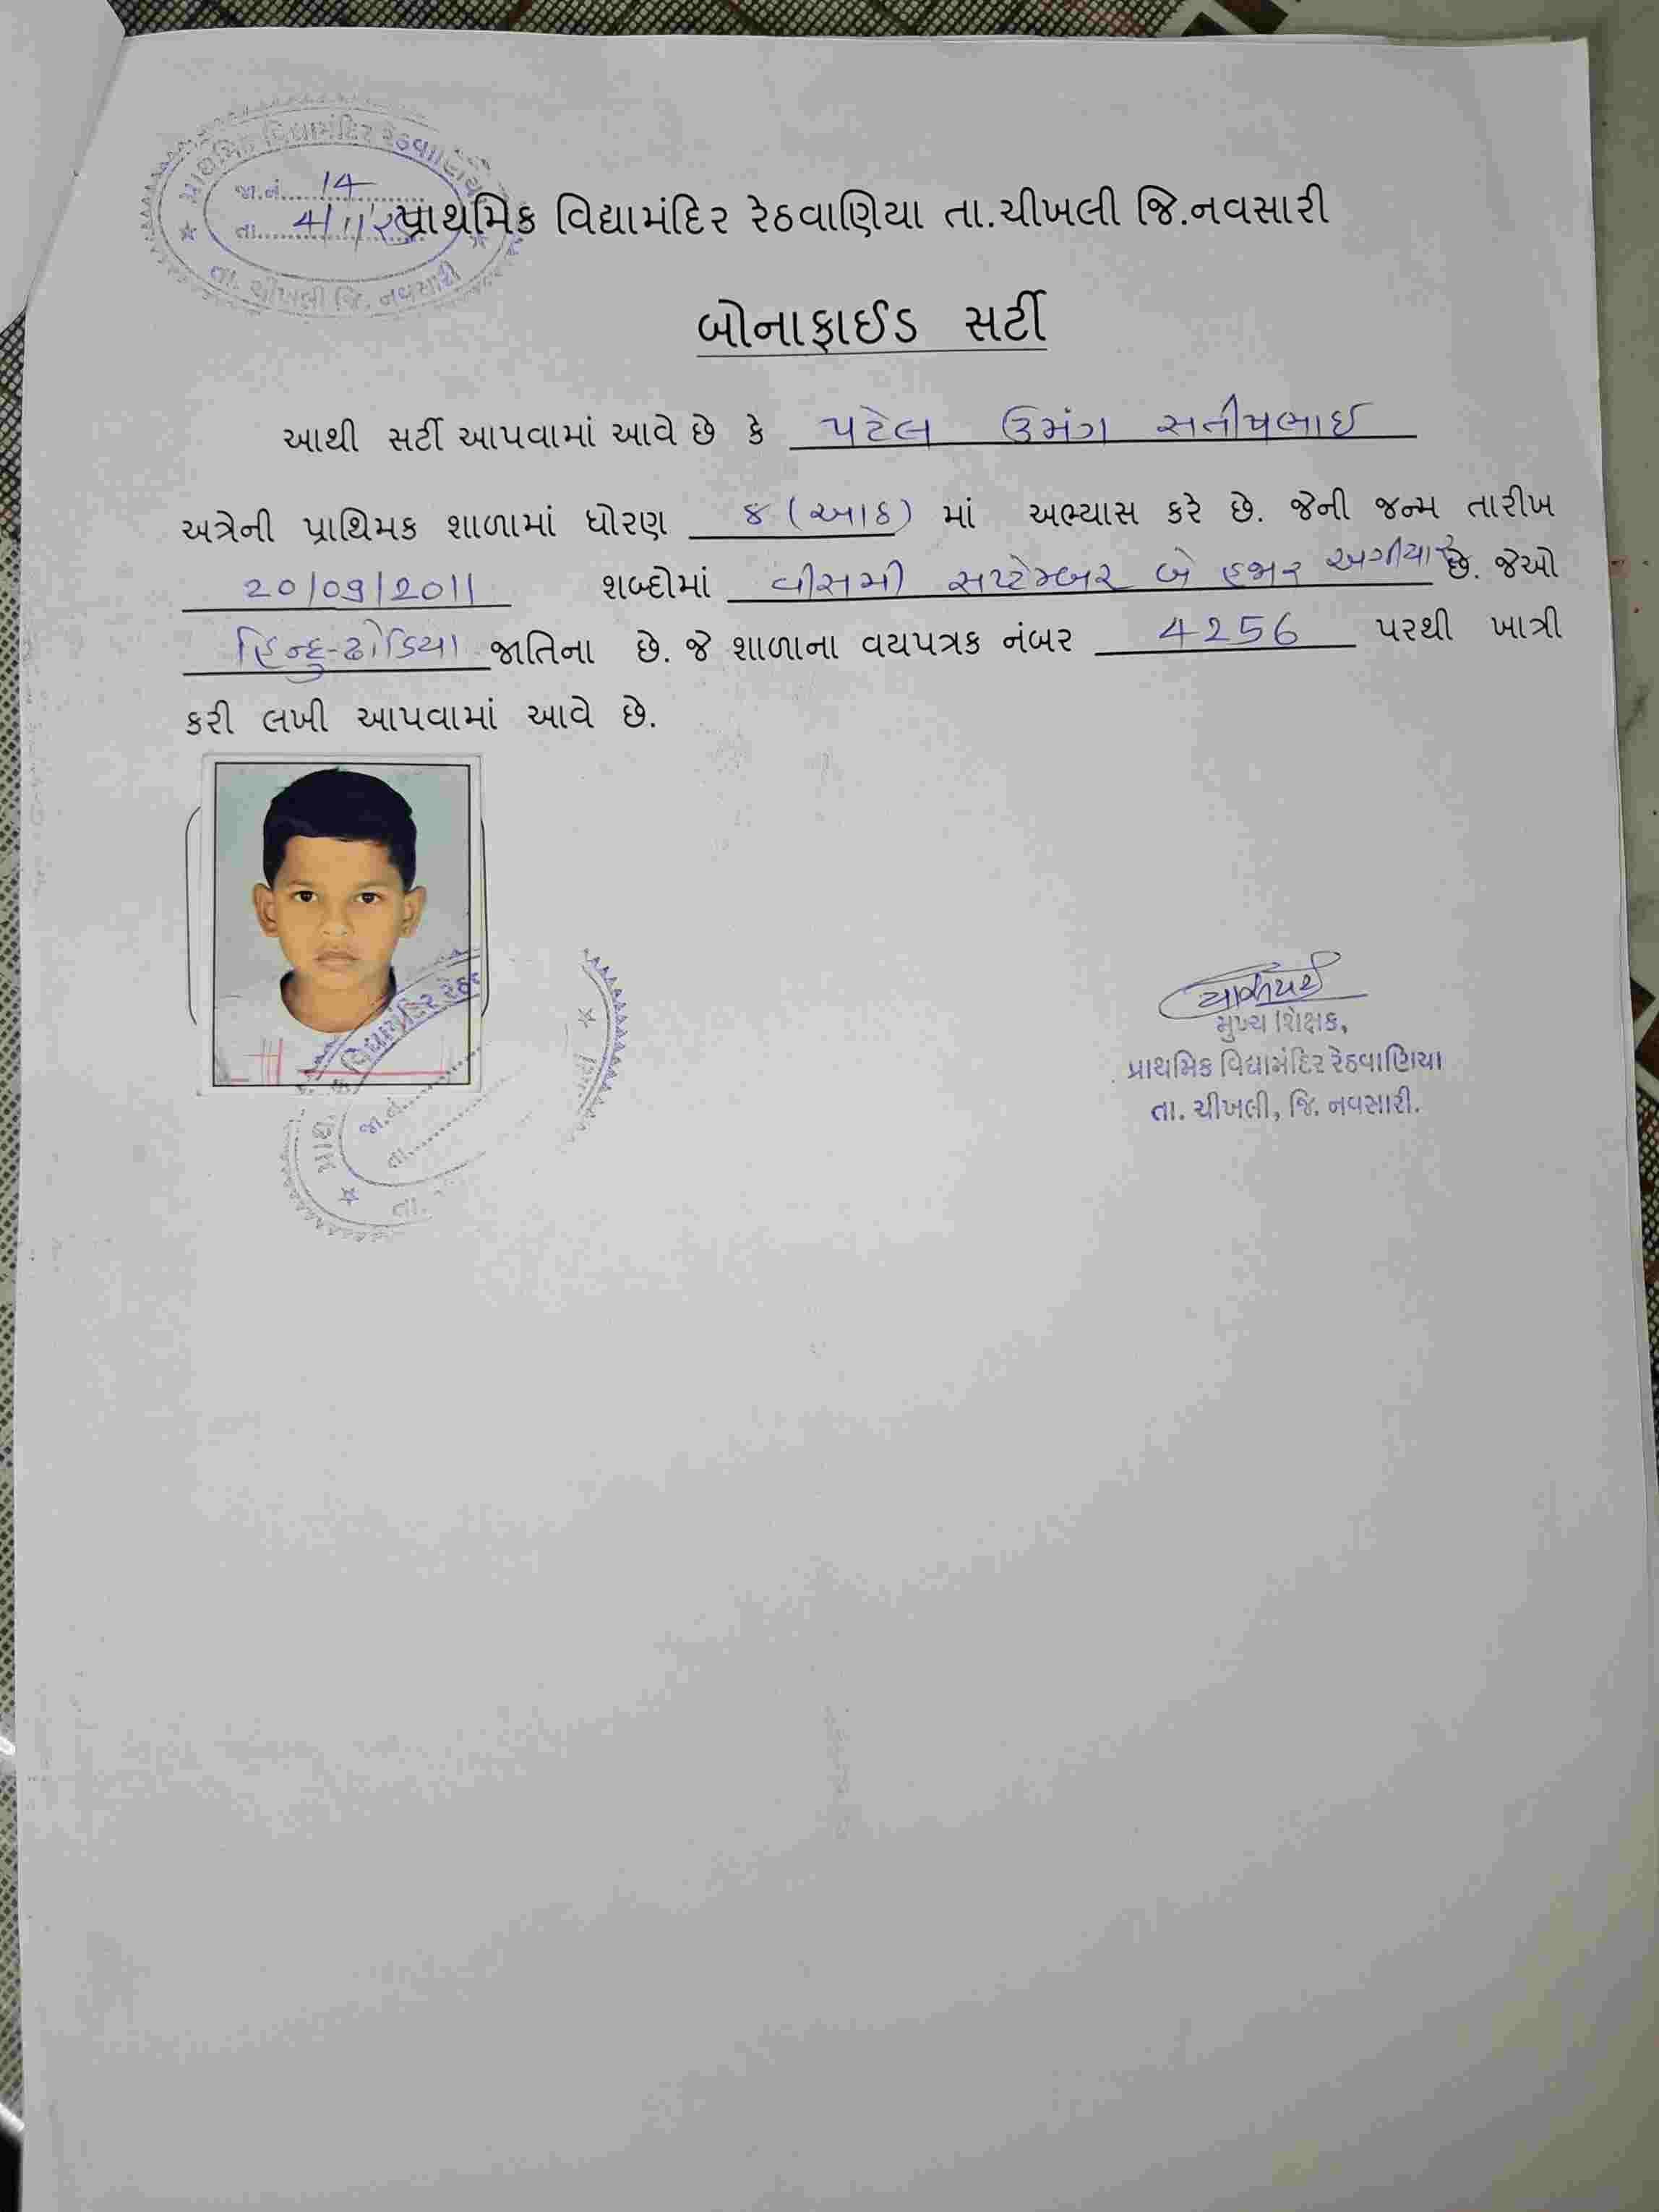 પ્રાથમિક વિદ્યામંદિર રેઠવાણિયા
જા.નં. 14
તા.
તા. ચીખલી જિ. નવસારી
પ્રાથમિક વિદ્યામંદિર રેઠવાણિયા તા.ચીખલી જિ.નવસારી
બોનાફાઈડ સર્ટી
આથી સર્ટી આપવામાં આવે છે કે પટેલ ઉમંગ સતીષભાઈ
અત્રેની પ્રાથિમક શાળામાં ધોરણ ૪ (આઠ) માં અભ્યાસ કરે છે. જેની જન્મ તારીખ
20/09/2011 શબ્દોમાં વીસમી સપ્ટેમ્બર બે હજાર અગીયાર છે. જેઓ
હિન્દુ-ઢોડિયા જાતિના છે. જે શાળાના વયપત્રક નંબર 4256 પરથી ખાત્રી
કરી લખી આપવામાં આવે છે.
વિદ્યામંદિર
જા.નં.
તા.
તા.
મુખ્ય શિક્ષક,
પ્રાથમિક વિદ્યામંદિર રેઠવાણિયા
તા. ચીખલી, જિ. નવસારી.